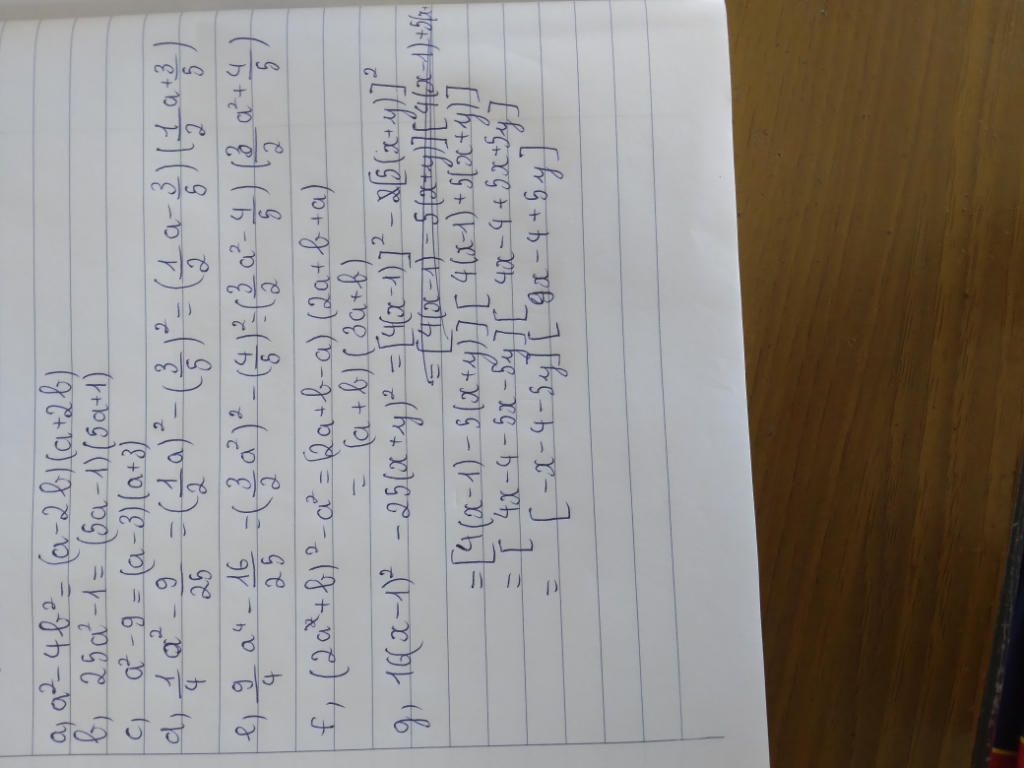 a, a² - 4b² = (a - 2b)(a + 2b)
b, 25a² - 1 = (5a - 1)(5a + 1)
c, a² - 9 = (a - 3)(a + 3)
d, 1/4 a² - 9/25 = (1/2 a)² - (3/5)² = (1/2 a - 3/5)(1/2 a + 3/5)
e, 9/4 a⁴ - 16/25 = (3/2 a²)² - (4/5)² = (3/2 a² - 4/5)(3/2 a² + 4/5)
f, (2a + b)² - a² = (2a + b - a)(2a + b + a)
= (a + b)(3a + b)
g, 16(x - 1)² - 25(x + y)² = [4(x - 1)]² - [5(x + y)]²
= [4(x - 1) - 5(x + y)][4(x - 1) + 5(
= [4(x - 1) - 5(x + y)][4(x - 1) + 5(x + y)]
= [4x - 4 - 5x - 5y][4x - 4 + 5x + 5y]
= [-x - 4 - 5y][9x - 4 + 5y]